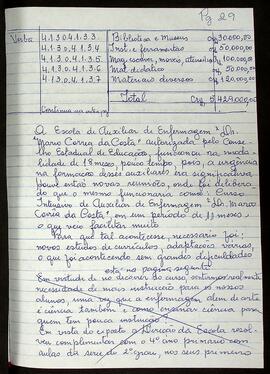 Pg 29
Verba 4.1.3.0.4.1.3.3 Biblioteca e Museus Cr$ 30.000,00
4.1.3.0.4.1.3.4 Inst. e ferramentas Cr$ 50.000,00
4.1.3.0.4.1.3.5 móveis, utensílios Cr$ 100.000,
4.1.3.0.4.1.3.6 Mat. didático Cr$ 50.000,
4.1.3.0.4.1.3.7 Materiais diversos Cr$ 120.000,00
Total Cr$
Continua na
A Escola de Auxiliar de Enfermagem "Dr.
Mario Corrêa da Costa" autorizada pelo Conse-
lho Estadual de Educação, funcionou na moda-
lidade de 18 meses algum tempo, pois, a urgência
na formação desses auxiliares era significativa
houve então novas reuniões, onde foi delibera-
do que a mesma funcionaria como: Curso
Intensivo de Auxiliar de Enfermagem "Dr. Mario
Corrêa da Costa", em um período de 11 meses
o que veio facilitar muito.
Para que tal acontecesse, necessário foi:
novos estudos de currículos, adaptações várias,
o que foi acontecendo sem grandes dificuldades.
página
Em virtude do no decorrer do curso sentirmos
necessidade de mais instrução para os nossos
alunos, uma vez que a enfermagem além de arte
é ciência também e como ensinar ciência para
quem tem pouca instrução?
Em vista do exposto a Direção da Escola resol-
veu complementar com o 4º ano primário com
aulas da série do 2º grau, nos seus primeiro